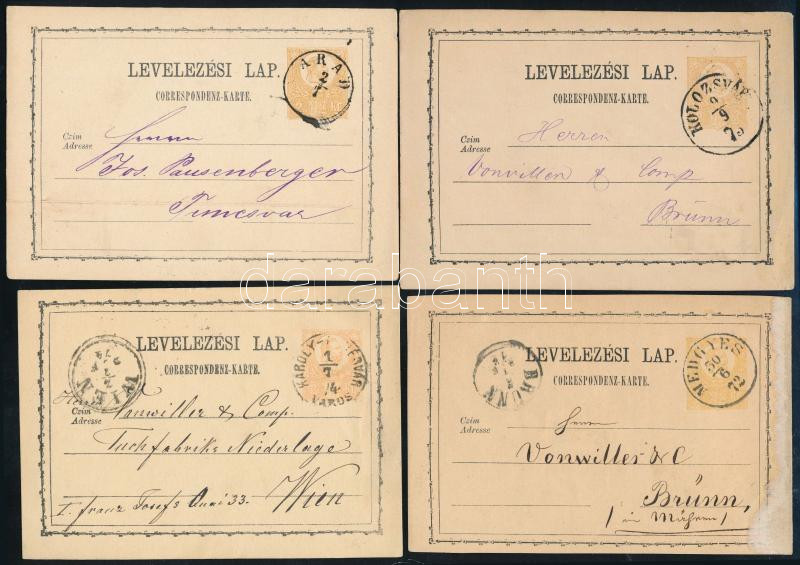 LEVELEZÉSI LAP.
CORRESPONDENZ-KARTE.
ARAD
2
7
Czim
Adresse
Herrn
Jos. Pausenberger
Temesvar
LEVELEZÉSI LAP.
CORRESPONDENZ-KARTE.
KOLOZSVÁR
9
Czim
Adresse
Herren
Vonviller & Comp
Brünn
darabanth
LEVELEZÉSI LAP.
CORRESPONDENZ-KARTE.
WIEN
VÁROS
1
7
74
Czim
Adresse
Vonwiller & Comp.
Tuchfabriks Niederlage
I. Franz Josefs Quai 33. Wien
LEVELEZÉSI LAP.
CORRESPONDENZ-KARTE.
BRÜNN
MEDGYES
30
6
72
Czim
Adresse
Herrn
Vonwiller & C
Brünn,
/ in Mähren /